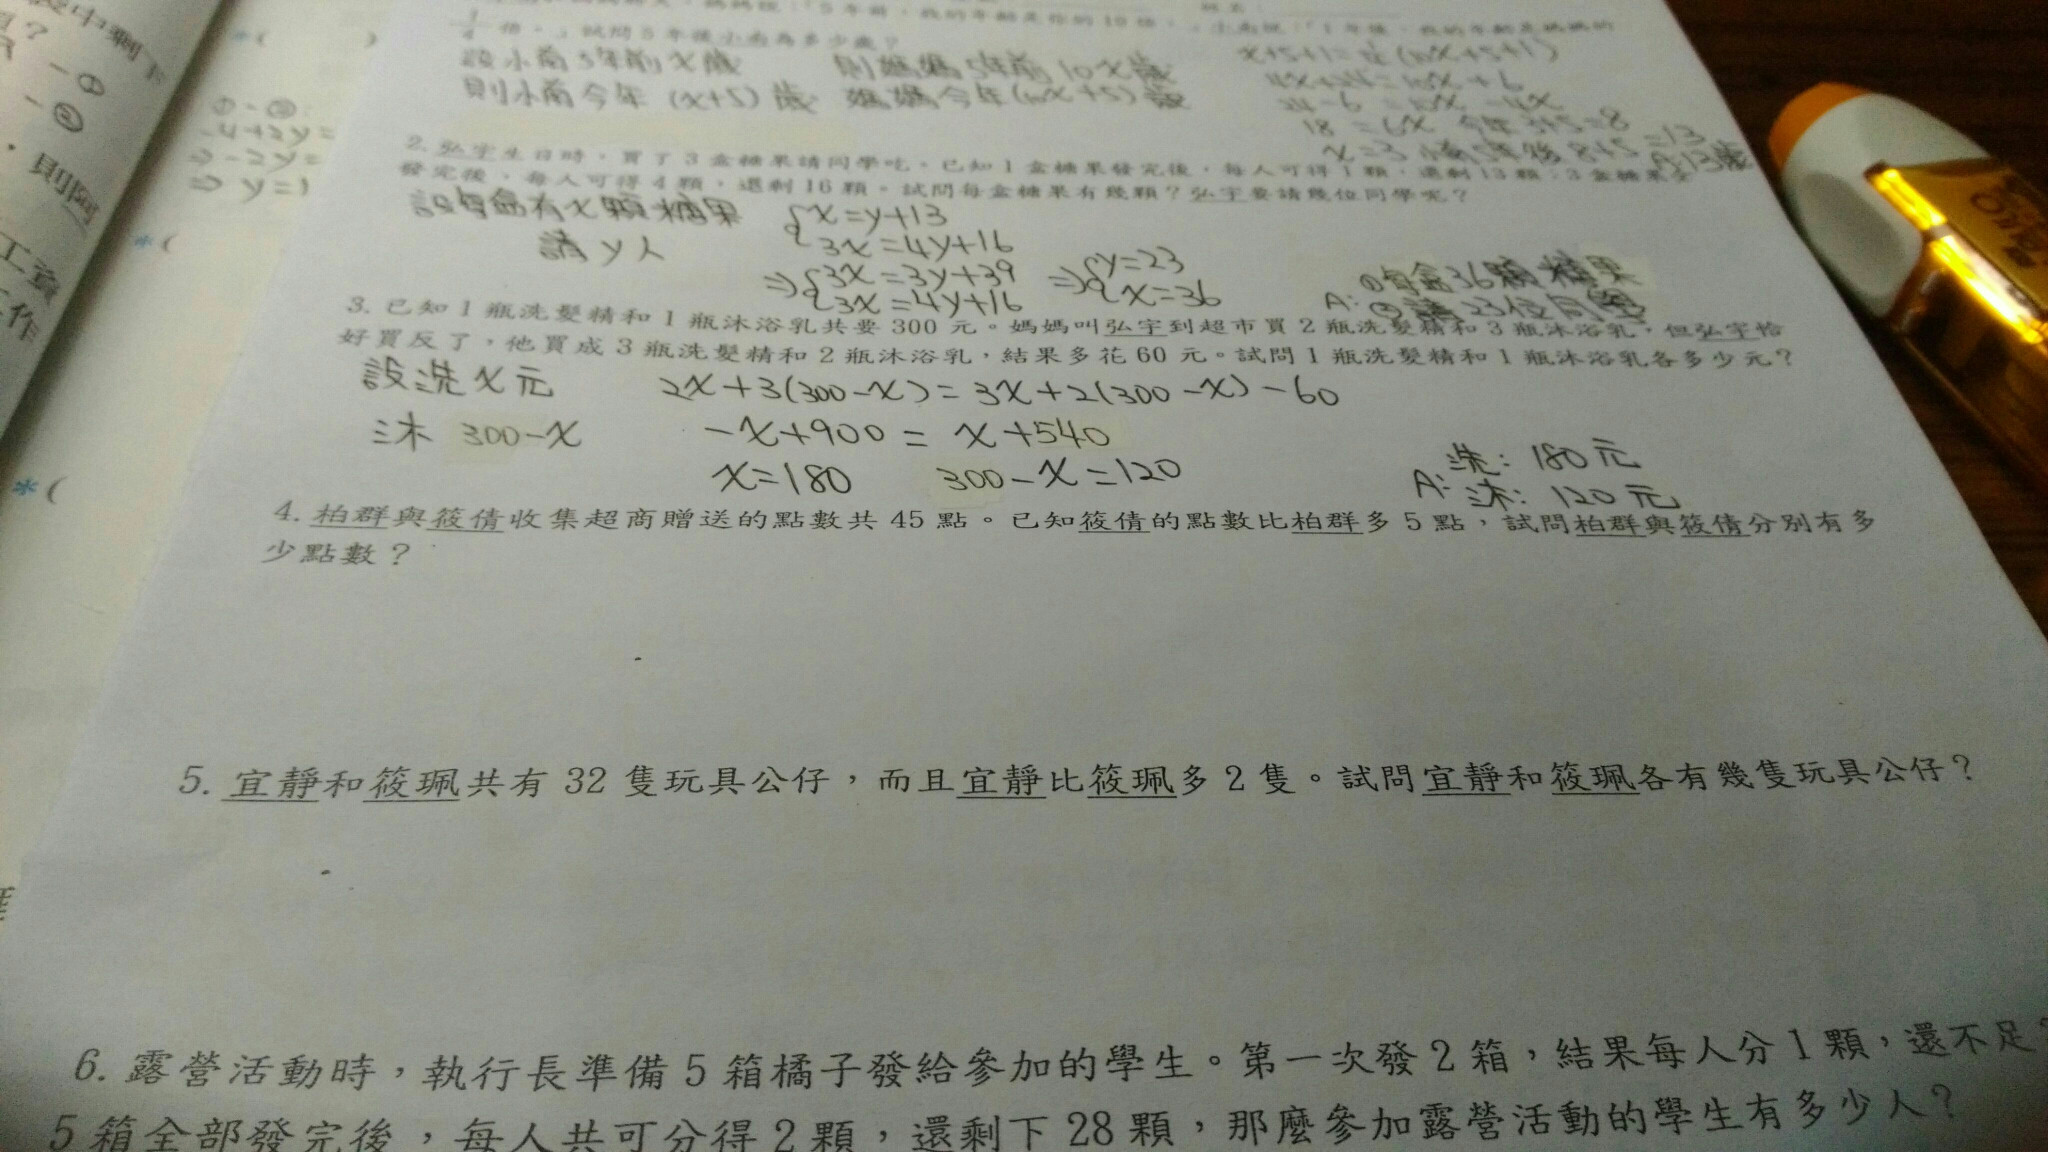 說中剩下
-①
-②
，則阿
工資
工作
*(        )
①-②
-4+2y=
⇒-2y=
⇒ y=1
*(
*(
，媽媽說：「5年前，我的年齡是你的10倍。」小南說：「1年後，我的年齡是媽媽的
1/4 倍。」試問5年後小南為多少歲？
設小南5年前x歲 則媽媽5年前10x歲
則小南今年(x+5)歲 媽媽今年(10x+5)歲
4x+24=10x+6
24-6=10x-4x
18=6x 今年3+5=8
x=3 小南5年後8+5=13
A:13歲
2. 弘宇生日時，買了3盒糖果請同學吃。已知1盒糖果發完後，每人可得1顆，還剩13顆；3盒糖果全
發完後，每人可得4顆，還剩16顆。試問每盒糖果有幾顆？弘宇要請幾位同學呢？
設每盒有x顆糖果
請y人
x=y+13
3x=4y+16
⇒ 3x=3y+39
3x=4y+16
⇒ y=23
x=36
A: ①每盒36顆糖果
②請23位同學
3. 已知1瓶洗髮精和1瓶沐浴乳共要300元。媽媽叫弘宇到超市買2瓶洗髮精和3瓶沐浴乳，但弘宇恰
好買反了，他買成3瓶洗髮精和2瓶沐浴乳，結果多花60元。試問1瓶洗髮精和1瓶沐浴乳各多少元？
設洗x元 2x+3(300-x)=3x+2(300-x)-60
沐 300-x -x+900=x+540
x=180 300-x=120
A: 洗：180元
沐：120元
4. 柏群與筱倩收集超商贈送的點數共45點。已知筱倩的點數比柏群多5點，試問柏群與筱倩分別有多
少點數？
5. 宜靜和筱珮共有32隻玩具公仔，而且宜靜比筱珮多2隻。試問宜靜和筱珮各有幾隻玩具公仔？
6. 露營活動時，執行長準備5箱橘子發給參加的學生。第一次發2箱，結果每人分1顆，還不足
5箱全部發完後，每人共可分得2顆，還剩下28顆，那麼參加露營活動的學生有多少人？